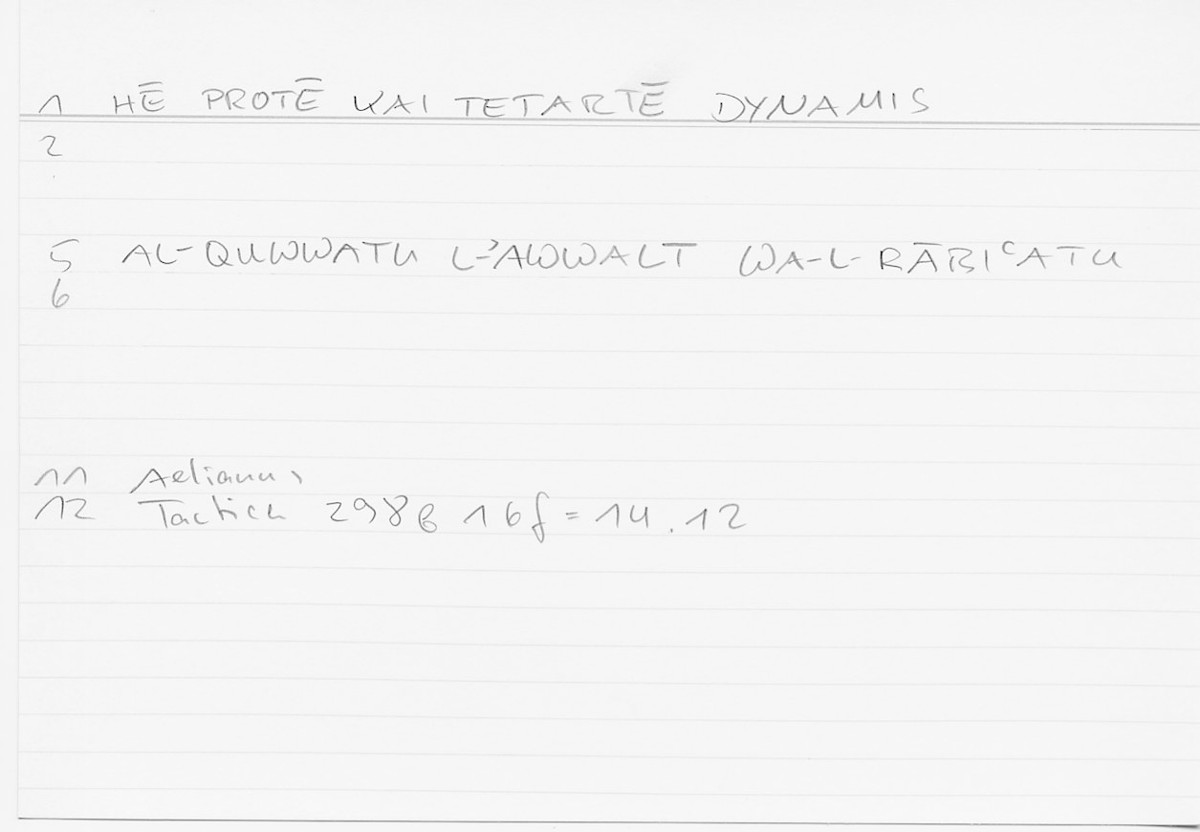 1 HĒ PROTĒ KAI TETARTĒ DYNAMIS
2
5 AL-QUWWATU L-ʾAWWALT WA-L-RĀBIʿATU
6
11 Aelianus
12 Tactica 298b 16f = 14.12